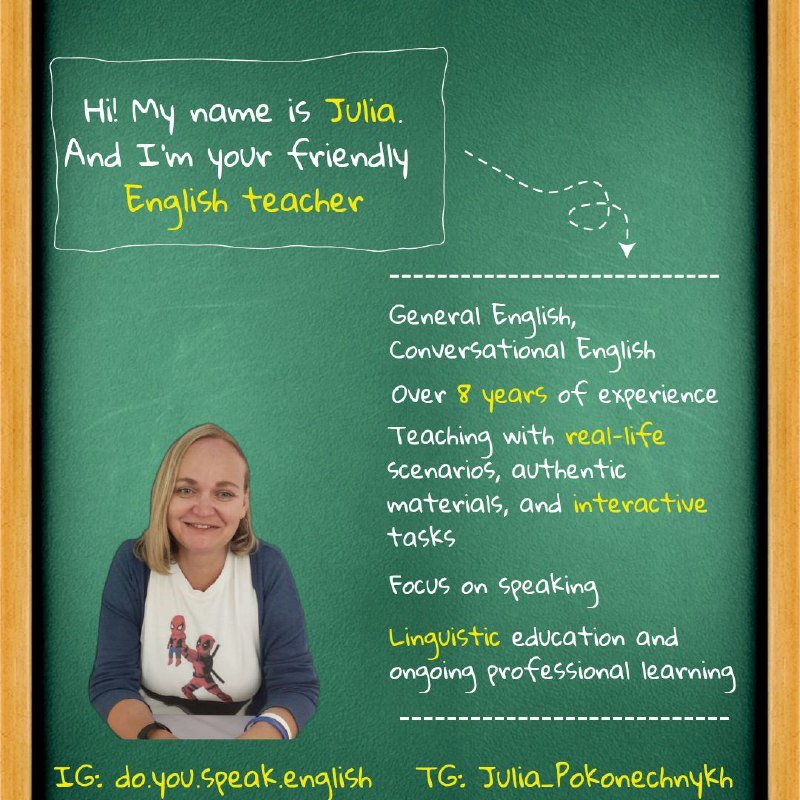 Hi! My name is Julia.
And I'm your friendly
English teacher
General English,
Conversational English
Over 8 years of experience
Teaching with real-life
scenarios, authentic
materials, and interactive
tasks
Focus on speaking
Linguistic education and
ongoing professional learning
IG: do.you.speak.english
TG: Julia_Pokonechnykh